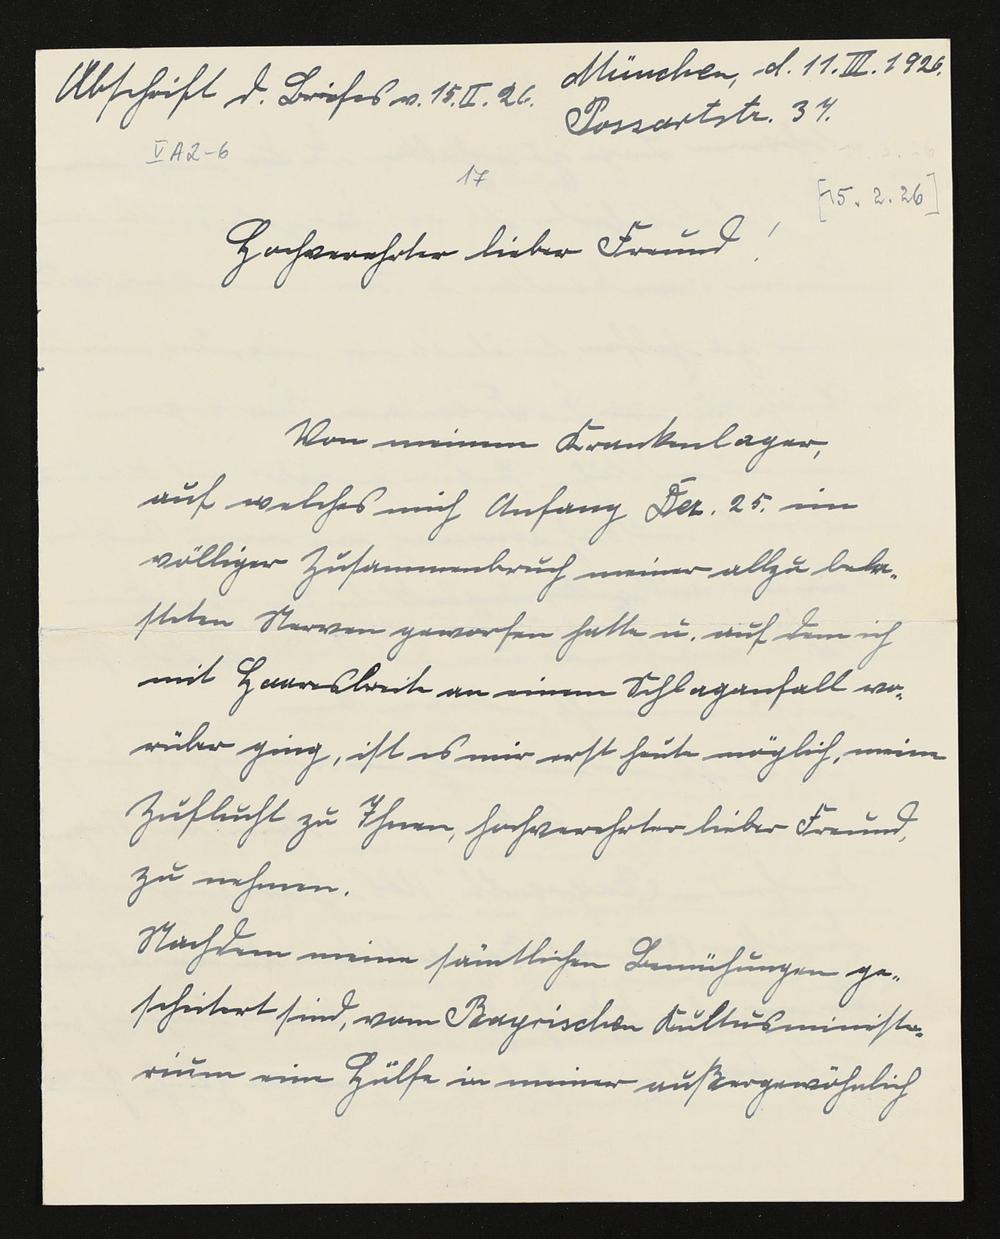 Abschrift d. Briefes v. 15.II.26.
München, d. 11.III.1926.
Possartstr. 37.
V A2-6
17
[15. 2. 26]
Hochverehrter lieber Freund!
Von meinem Krankenlager,
auf welches mich Anfang Dez. 25. ein
völliger Zusammenbruch meiner allzu bela-
steten Nerven geworfen hatte u. auf dem ich
mit Haaresbreite an einem Schlaganfall vo-
rüber ging, ist es mir erst heute möglich, meine
Zuflucht zu Ihnen, hochverehrter lieber Freund,
zu nehmen.
Nachdem meine sämtlichen Bemühungen ge-
scheitert sind, vom Bayrischen Kultusministe-
rium eine Hülfe in meiner außergewöhnlich